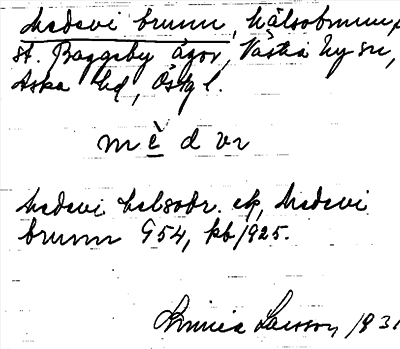 Medevi brunn, hälsobrunn på
st. Baggeby ägor, Västra Ny sn,
Aska hd, Östgl.
m è d vr
Medevi helsobr. ek, Medevi
brunn G54, kb 1925.
Linnéa Larsson 1931